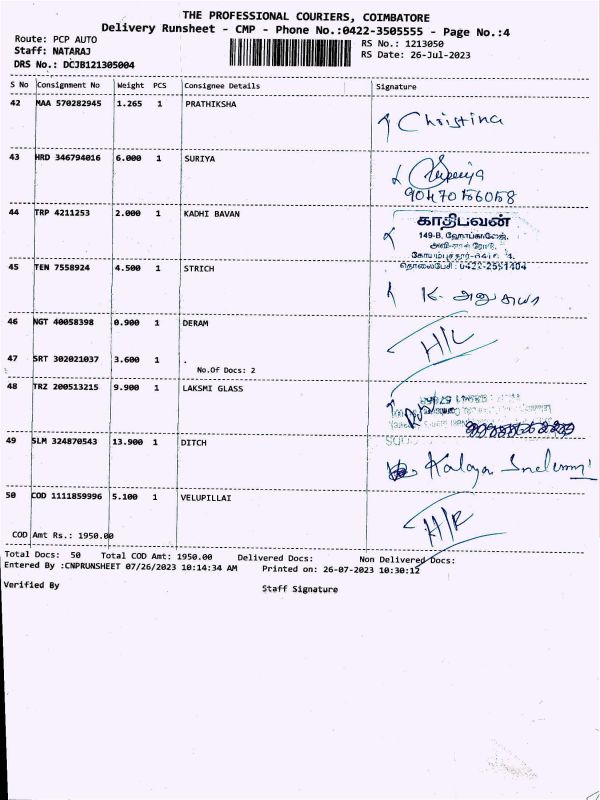 THE PROFESSIONAL COURIERS, COIMBATORE
Delivery Runsheet - CMP - Phone No.:0422-3505555 - Page No.:4
Route: PCP AUTO
RS No.: 1213050
Staff: NATARAJ
RS Date: 26-Jul-2023
DRS No.: DCJB121305004
S No Consignment No Weight PCS Consignee Details Signature
42 MAA 570282945 1.265 1 PRATHIKSHA
Christina
43 HRD 346794016 6.000 1 SURIYA
9047056058
44 TRP 4211253 2.000 1 KADHI BAVAN
காதிபவன்
149-B,
45 TEN 7558924 4.500 1 STRICH
தொலைபேசி : 0422-2551404
K. அனுசுயா
46 NGT 40058398 0.900 1 DERAM
47 SRT 302021037 3.600 1 .
No.Of Docs: 2
48 TRZ 200513215 9.900 1 LAKSMI GLASS
49 SLM 324870543 13.900 1 DITCH
Kalaya
50 COD 1111859996 5.100 1 VELUPILLAI
COD Amt Rs.: 1950.00
Total Docs: 50 Total COD Amt: 1950.00 Delivered Docs: Non Delivered Docs:
Entered By :CNPRUNSHEET 07/26/2023 10:14:34 AM Printed on: 26-07-2023 10:30:12
Verified By
Staff Signature